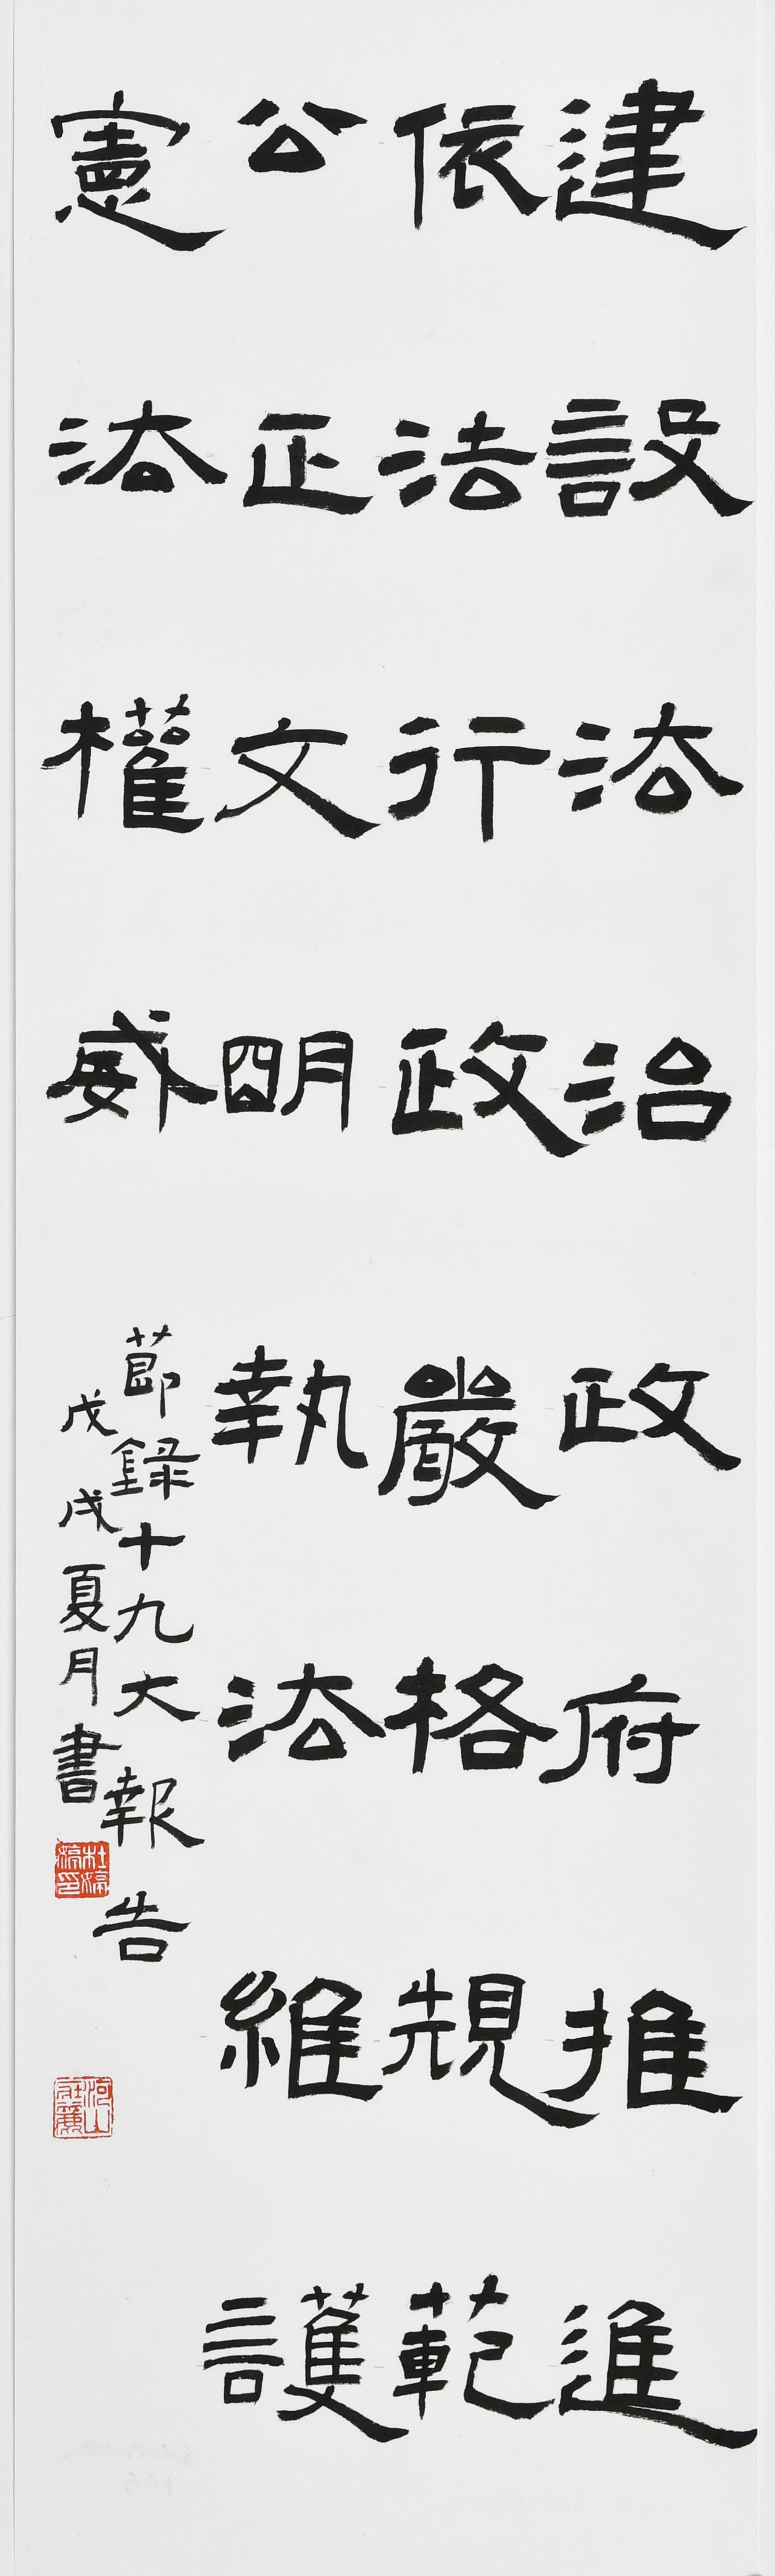 建設法治政府推進
依法行政嚴格規範
公正文明執法維護
憲法權威
節録十九大報告
戊戌夏月書